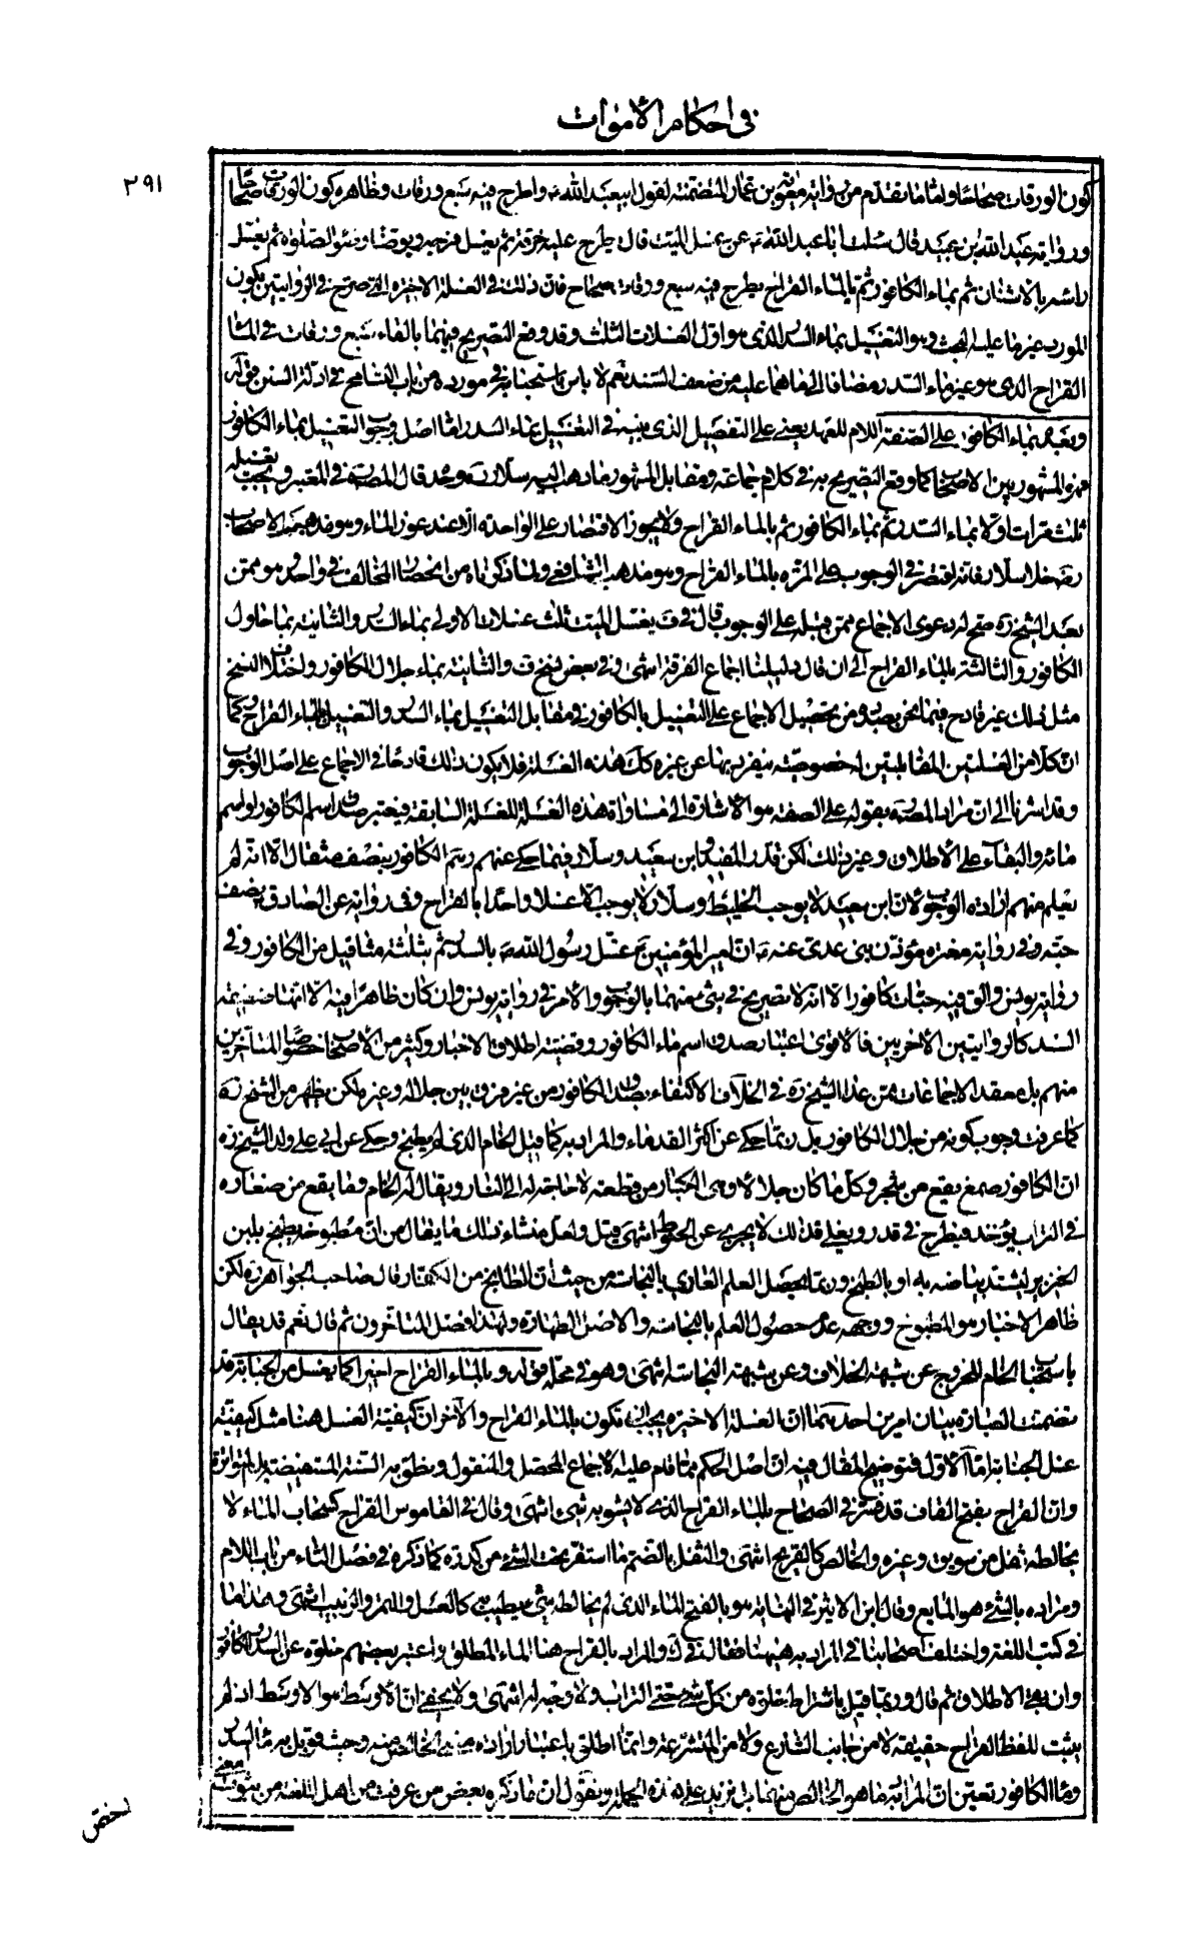 في احكام الأموات
٣٩١
كون الورقات صحاحا واما ما تقدم من رواية معوية بن عمار المتضمنة لقول ابيعبد الله ع واطرح فيه سبع ورقات وظاهره كون الورقات صحاحا
ورواية عبد الله بن عبيد قال سئلت ابا عبد الله ع عن غسل الميت قال يطرح عليه خرقة ثم يغسل فرجه ويوضأ وضوء الصلوة ثم يغسل
راسه بالاشنان ثم بماء الكافور ثم بالماء القراح يطرح فيه سبع ورقات صحاح فان ذلك في الغسلة الاخيرة التي صرح في الروايتين بكون
المورد غير ما عليه البحث وهو التغسيل بماء السدر الذي هو اول الغسلات الثلث وقد وقع التصريح فيهما بالقاء سبع ورقات في الماء
القراح الذي هو غير ماء السدر مضافا الى ما هما عليه من ضعف السند نعم لا باس باستحبابه في مورده من باب التسامح في ادلة السنن قوله
وبعده بماء الكافور على الصفة اللام للعهد يعني على التفصيل الذي بينه في التغسيل بماء السدر اما اصل وجوب التغسيل بماء الكافور
فهو المشهور بين الاصحاب كما وقع التصريح به في كلام جماعة ومقابل المشهور ما ذهب اليه سلار ره وقد قال المصنف ره في المعتبر ويجب تغسيله
ثلث مرات اولا بماء السدر ثم بماء الكافور ثم بالماء القراح ولا يجوز الاقتصار على الواحدة الا عند عوز الماء وهو مذهب الاصحاب
رض خلا سلار فانه اقتصر في الوجوب على المرة بالماء القراح وهو مذهب الشافعي ولما ذكرناه من انحصار المخالف في واحد وهو ممن
بعد الشيخ ره صح له دعوى الاجماع ممن قبله على الوجوب قال في ف يغسل الميت ثلث غسلات الاولى بماء السدر والثانية بماء جلال
الكافور والثالثة بالماء القراح الى ان قال دليلنا اجماع الفرقة انتهى وفي بعض نسخ ف والثانية بماء جلال الكافور واختلاف النسخ
مثل ذلك غير قادح فيما نحن بصدده من تحصيل الاجماع على التغسيل بالكافور في مقابل التغسيل بماء السدر والتغسيل بالماء القراح وكما
ان كلا من الغسلتين المقابلتين له خصوصية ينفرد بها عن غيره كك هذه الغسلة فلا يكون ذلك قادحا في الاجماع على اصل الوجوب
وقد اشرنا الى ان مراد المصنف ره بقوله على الصفة هو الاشارة الى مساواة هذه الغسلة للغسلة السابقة فيعتبر صدق اسم الكافور او اسم
مائه والبقاء على الاطلاق وغير ذلك لكن قدر المفيد وابن سعيد وسلار فيما حكى عنهم ره الكافور بنصف مثقال الا انه لم
يعلم منهم ارادة الوجوب لان ابن سعيد لا يوجب الخليط وسلار لا يوجب الا غسلا واحدا بالقراح وفي رواية عن الصادق ع نصف
حبة وفي رواية مغيرة مؤذن بني عدي عنه ع ان امير المؤمنين ع غسل رسول الله ص بالسدر ثم بثلثة مثاقيل من الكافور وفي
رواية يونس والق فيه حبات كافور الا انه لا تصريح في شيء منهما بالوجوب والامر في رواية يونس وان كان ظاهرا فيه الا انها ضعيفة
السند كالروايتين الاخريين فالاقوى اعتبار صدق اسم ماء الكافور وقضية اطلاق الاخبار وكثير من الاصحاب خصوصا المتاخرين
منهم بل معقد الاجماعات ممن عدا الشيخ ره في الخلاف الاكتفاء بصدق الكافور من غير فرق بين جلاله وغيره لكن ظهر من الشيخ ره
كما عرفت وجوب كونه من جلال الكافور بل ربما حكى عن اكثر القدماء والمراد به كما قيل الخام الذي لم يطبخ وحكى عن ابي علي ولد الشيخ ره
ان الكافور صمغ يقع من شجر وكل ما كان جلالا وهي الكبار من قطعه لا حاجة له الى النار ويقال له الخام وما يقع من صغاره
في التراب يؤخذ فيطرح في قدر ويغلى فذلك لا يجزي عن الحنوط انتهى قيل ولعل منشاء ذلك ما يقال من ان مطبوخه يطبخ بلبن
الخنزير ليشتد بياضه به او بالطبخ وربما يحصل العلم العادي بالنجاسة من حيث ان الطابخ من الكفار قال صاحب الجواهر ره لكن
ظاهر الاخبار هو المطبوخ ووجهه عدم حصول العلم بالنجاسة والاصل الطهارة ولهذا فصل المتاخرون ثم قال نعم قد يقال
باستحباب الخام للخروج عن شبهة الخلاف وعن شبهة النجاسة انتهى وهو في محله قوله وبالماء القراح اخيرا كما يغسل من الجنابة قد
تضمنت العبارة بيان امرين احدهما ان الغسلة الاخيرة يجب ان تكون بالماء القراح والآخر ان كيفية الغسل هنا مثل كيفية
غسل الجنابة اما الاول فتوضيح المقال فيه ان اصل الحكم مما قام عليه الاجماع المحصل والمنقول ونطق به السنة المستفيضة بل المتواترة
وان القراح بفتح القاف قد فسر في الصحاح بالماء القراح الذي لا يشوبه شيء انتهى وقال في القاموس القراح كسحاب الماء لا
يخالطه ثفل من سويق وغيره والخالص كالقريح انتهى والثفل بالضم ما استقر تحت الشيء من كدره كما ذكره في فصل الثاء من باب اللام
ومراده بالشيء هو المايع وقال ابن الاثير في النهاية هو بالفتح الماء الذي لم يخالطه شيء يطيب به كالعسل والتمر والزبيب انتهى وهذا ما
في كتب اللغة واختلف اصحابنا في المراد به هيهنا فقال في ك والمراد بالقراح هنا الماء المطلق واعتبر بعضهم خلوه عن السدر والكافور
وان بقي الاطلاق ثم قال وربما قيل باشتراط خلوه من كل شيء حتى التراب ولا وجه له انتهى ولا يخفى ان الاوسط هو الاوسط اذ لم
يثبت للفظ القراح حقيقة لا من جانب الشارع ولا من المتشرعة وانما اطلق باعتبار ارادة معنى الخالص منه وحيث قوبل به ماء السدر
وماء الكافور تعين ان المراد به ما هو الخالص منهما بل نزيد على هذه الجملة ونقول ان ما ذكره بعض من عرفت من اهل اللغة من ثبوت معنى
لخصوص